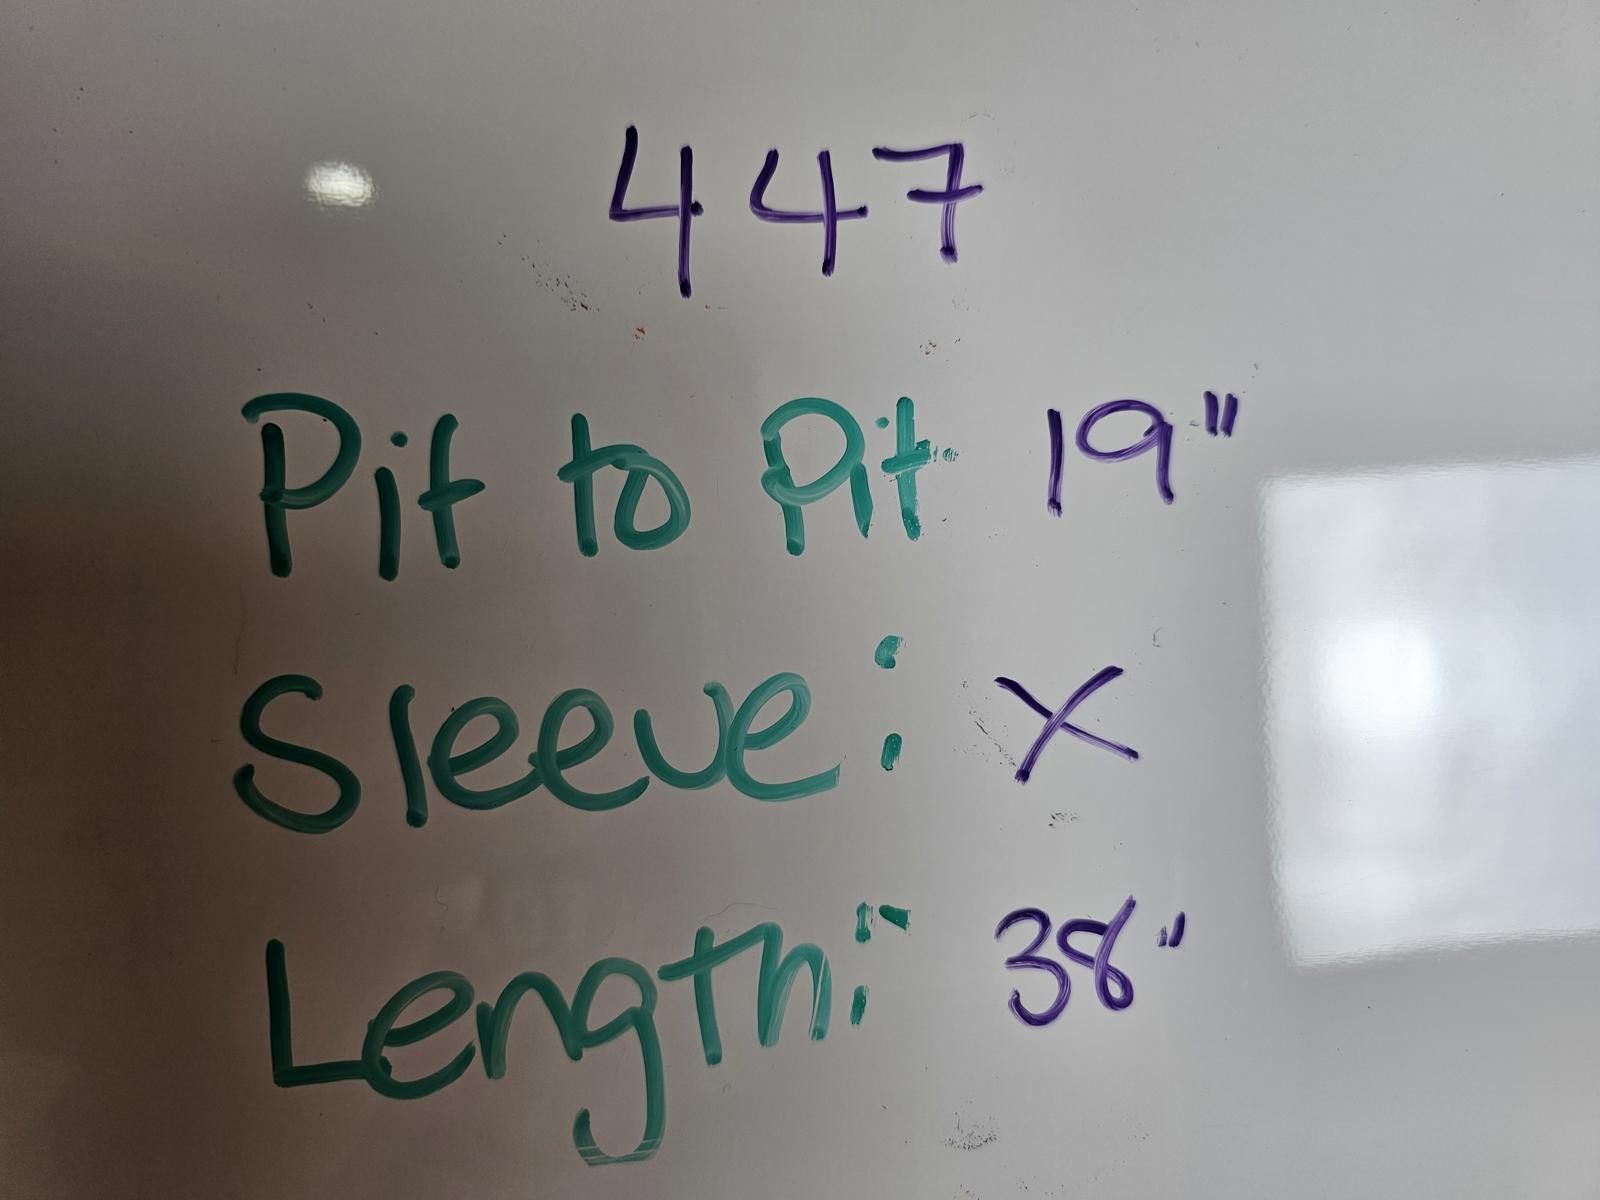 447
Pit to Pit 19"
Sleeve: X
Length: 38"